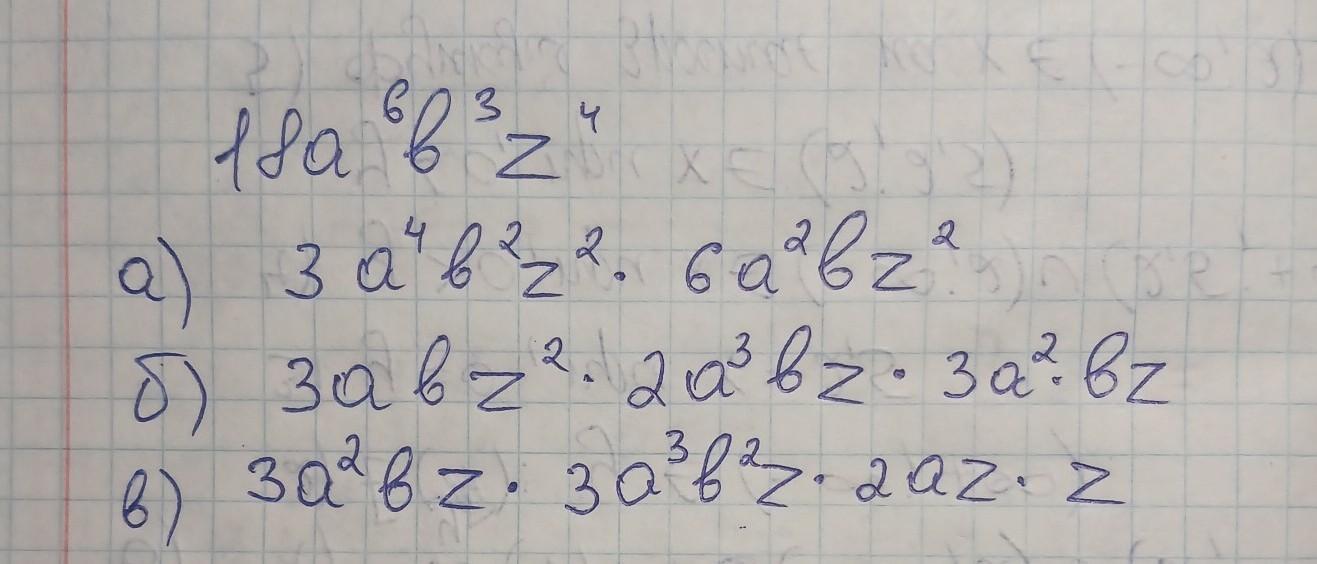 18a⁶b³z⁴
а) 3a⁴b²z² · 6a²bz²
б) 3abz² · 2a³bz · 3a² · bz
в) 3a²bz · 3a³b²z · 2az · z